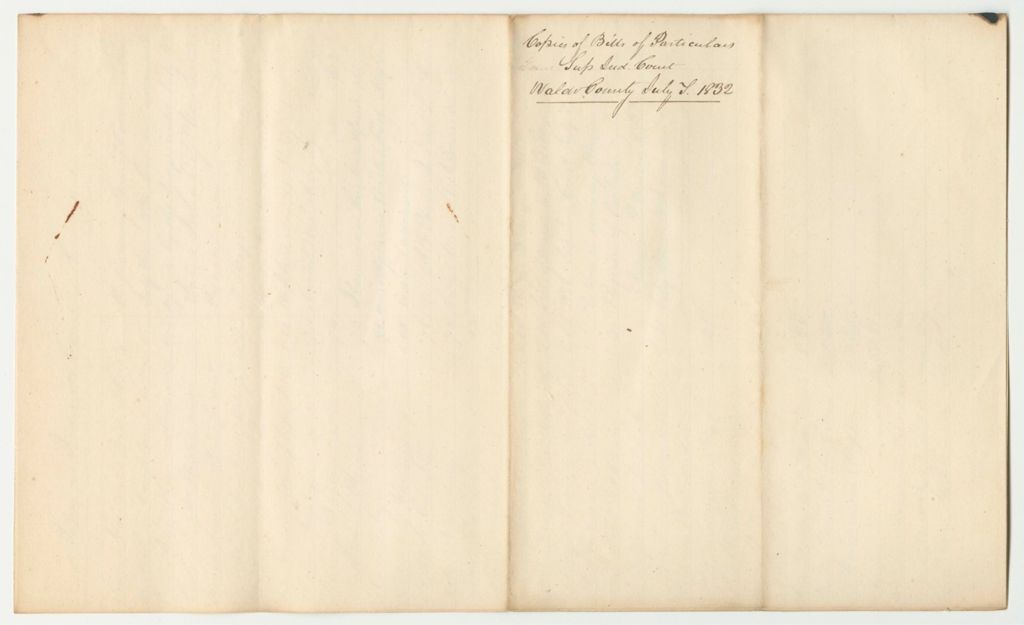 Copies of Bills of Particulars
Sup. Jud. Court
Waldo County July T. 1832